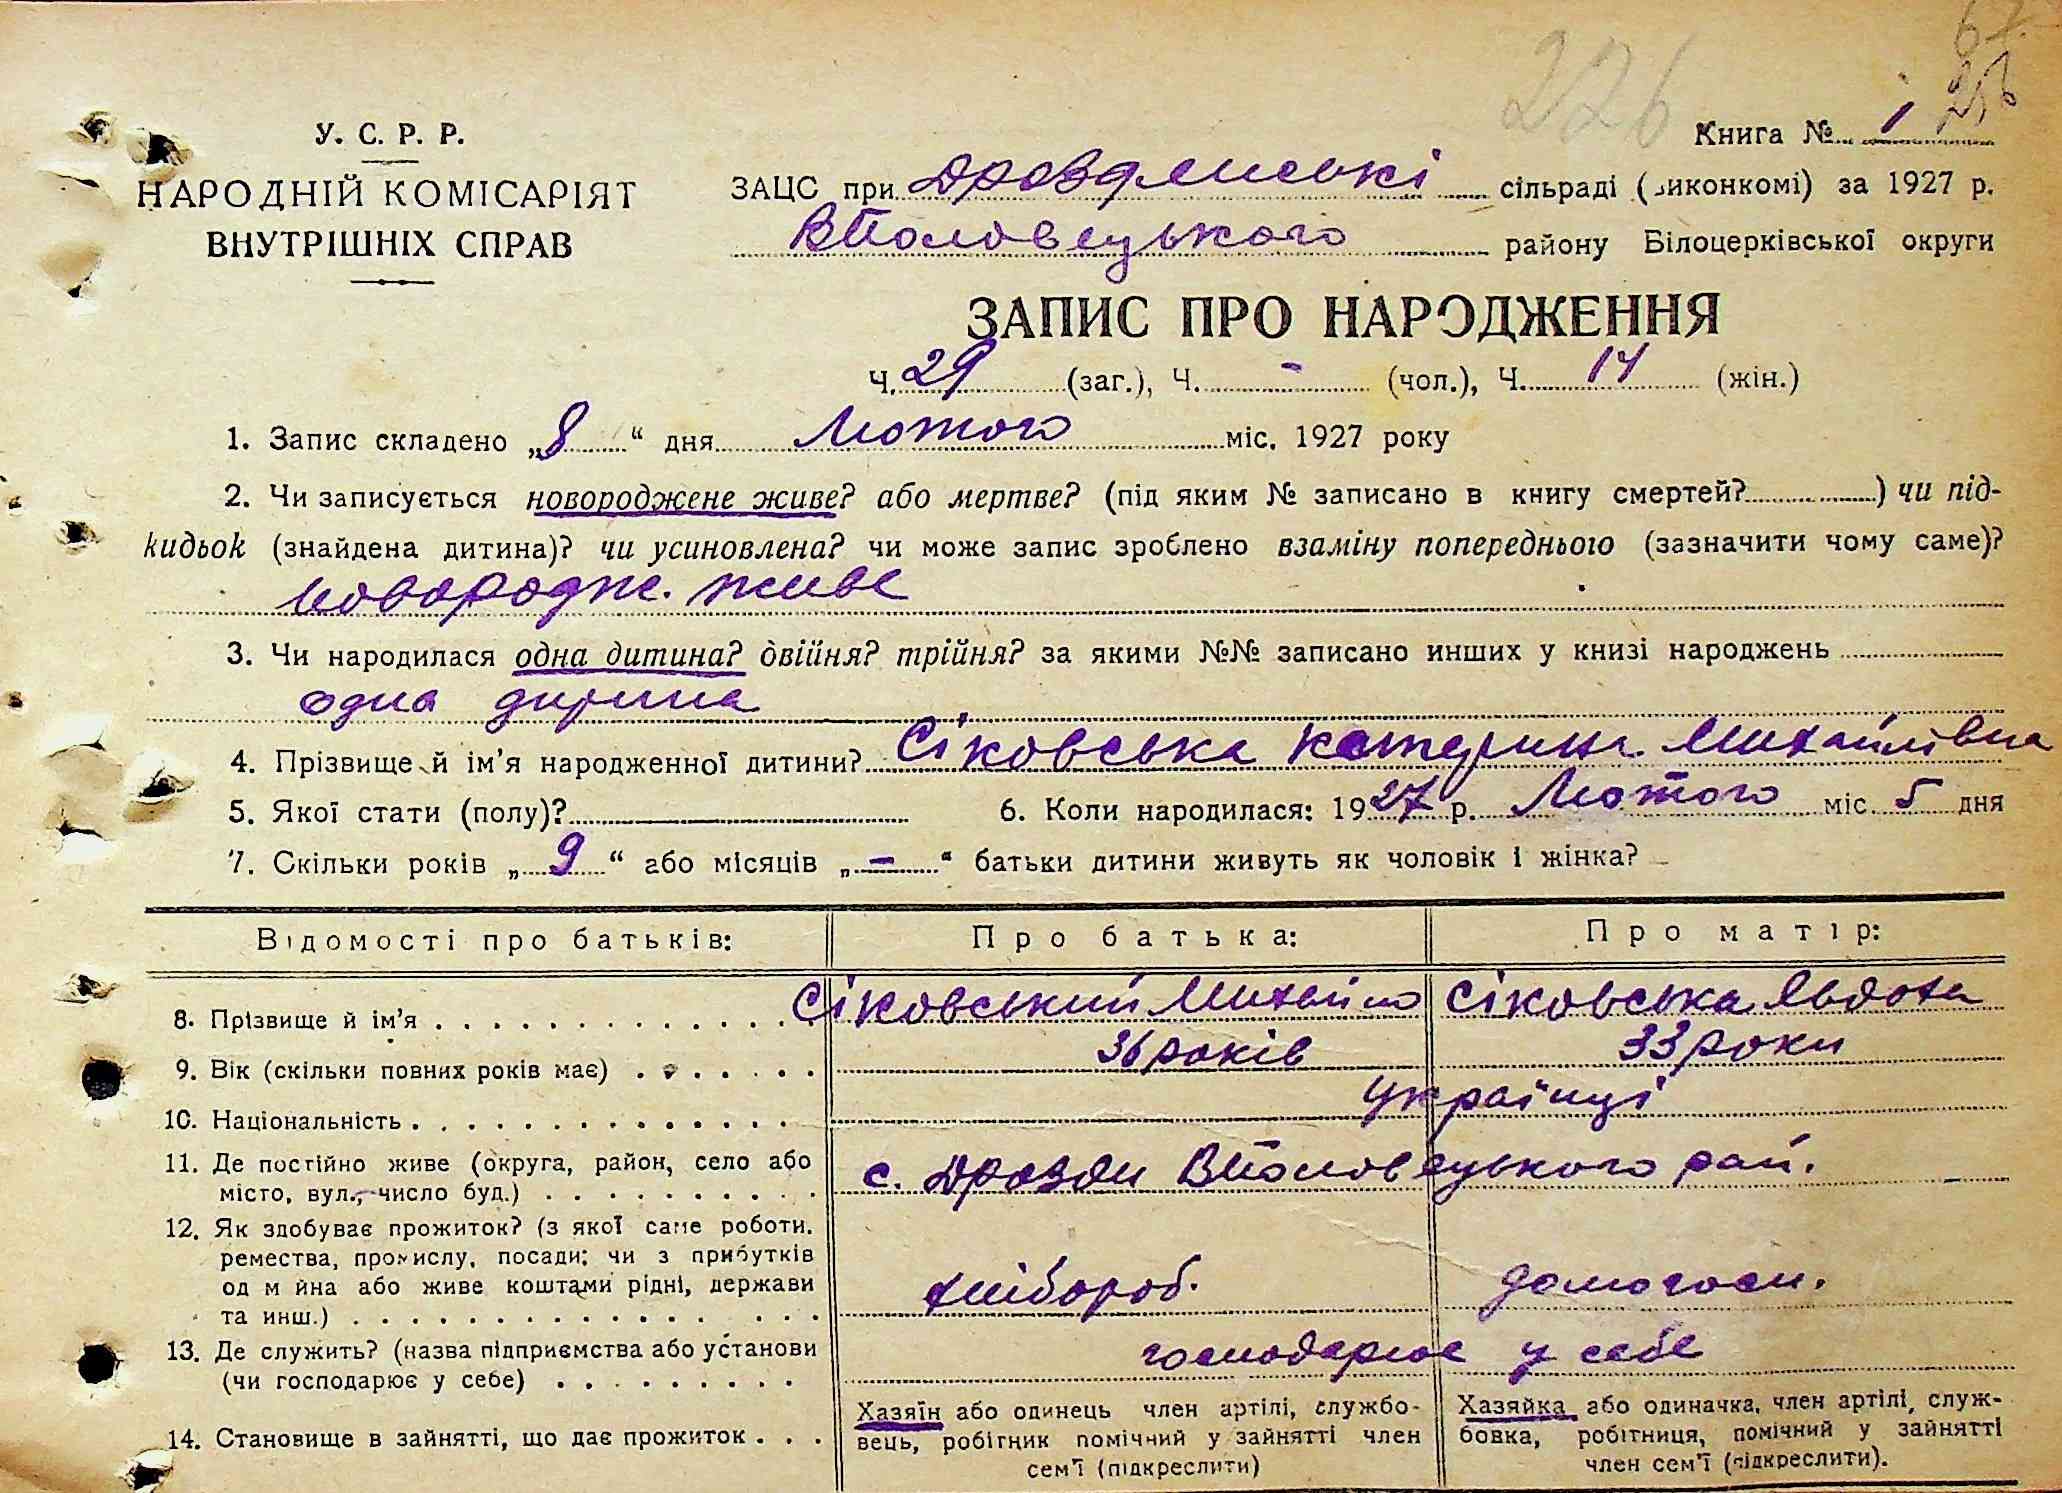 226
67
256
У. С. Р. Р.
НАРОДНІЙ КОМІСАРІЯТ
ВНУТРІШНІХ СПРАВ
Книга № 1
ЗАЦС при Дроздянські сільраді (виконкомі) за 1927 р.
ВПоловецького району Білоцерківської округи
ЗАПИС ПРО НАРОДЖЕННЯ
Ч. 29 (заг.), Ч. - (чол.), Ч. 14 (жін.)
1. Запис складено „8“ дня Лютого міс. 1927 року
2. Чи записується новороджене живе? або мертве? (під яким № записано в книгу смертей?) чи під-
кидьок (знайдена дитина)? чи усиновлена? чи може запис зроблено взаміну попереднього (зазначити чому саме)?
новородж. живе
3. Чи народилася одна дитина? двійня? трійня? за якими №№ записано инших у книзі народжень
одна дитина
4. Прізвище й ім’я народженної дитини? Сіковська Катерина Михайлівна
5. Якої стати (полу)? 6. Коли народилася: 1927 р. Лютого міс. 5 дня
7. Скільки років „9“ або місяців „-“ батьки дитини живуть як чоловік і жінка?
Відомості про батьків: Про батька: Про матір:
8. Прізвище й ім’я Сіковський Михайло Сіковська Явдоха
9. Вік (скільки повних років має) 36 років 33 роки
10. Національність українці
11. Де постійно живе (округа, район, село або
місто, вул., число буд.) с. Дрозди ВПоловецького рай.
12. Як здобуває прожиток? (з якої саме роботи,
ремества, промислу, посади; чи з прибутків
од м йна або живе коштами рідні, держави
та инш.) хлібороб. домогосп.
13. Де служить? (назва підприємства або установи
(чи господарює у себе) господарює у себе
14. Становище в зайнятті, що дає прожиток
Хазяїн або одинець член артілі, службо-
вець, робігник помічний у зайнятті член
сем’ї (підкреслити)
Хазяйка або одиначка, член артілі, служ-
бовка, робітниця, помічний у зайнятті
член сем’ї (підкреслити).